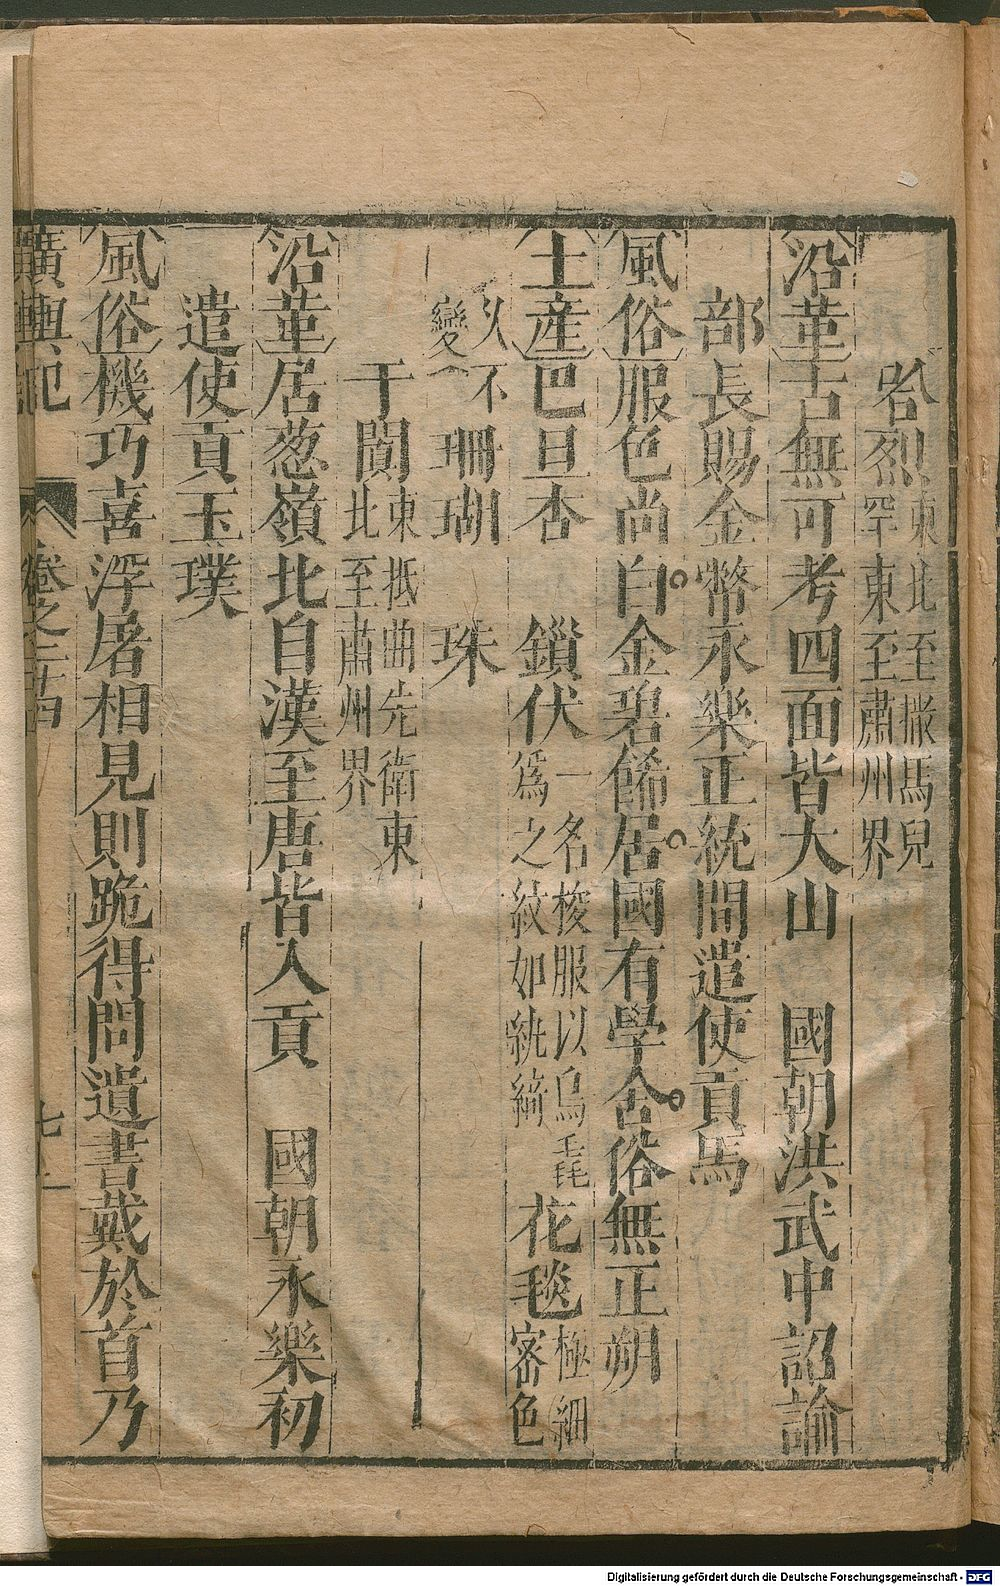 哈烈東北至撒馬兒罕東至肅州界
沿革古無可考四面皆大山 國朝洪武中詔諭
部長賜金幣永樂正統間遣使貢馬
風俗服色尚白金碧餙居國有學舍俗無正朔
土產巴旦杏 鎻伏一名梭服以鳥毳為之紋如紈綺 花毯極細密色
久不變 珊瑚 珠
于闐東抵曲先衛東北至肅州界
沿革居葱嶺北自漢至唐皆入貢 國朝永樂初
遣使貢玉璞
風俗機巧喜浮屠相見則跪得問遺書戴於首乃
廣輿記 卷之二十四
Digitalisierung gefördert durch die Deutsche Forschungsgemeinschaft - DFG